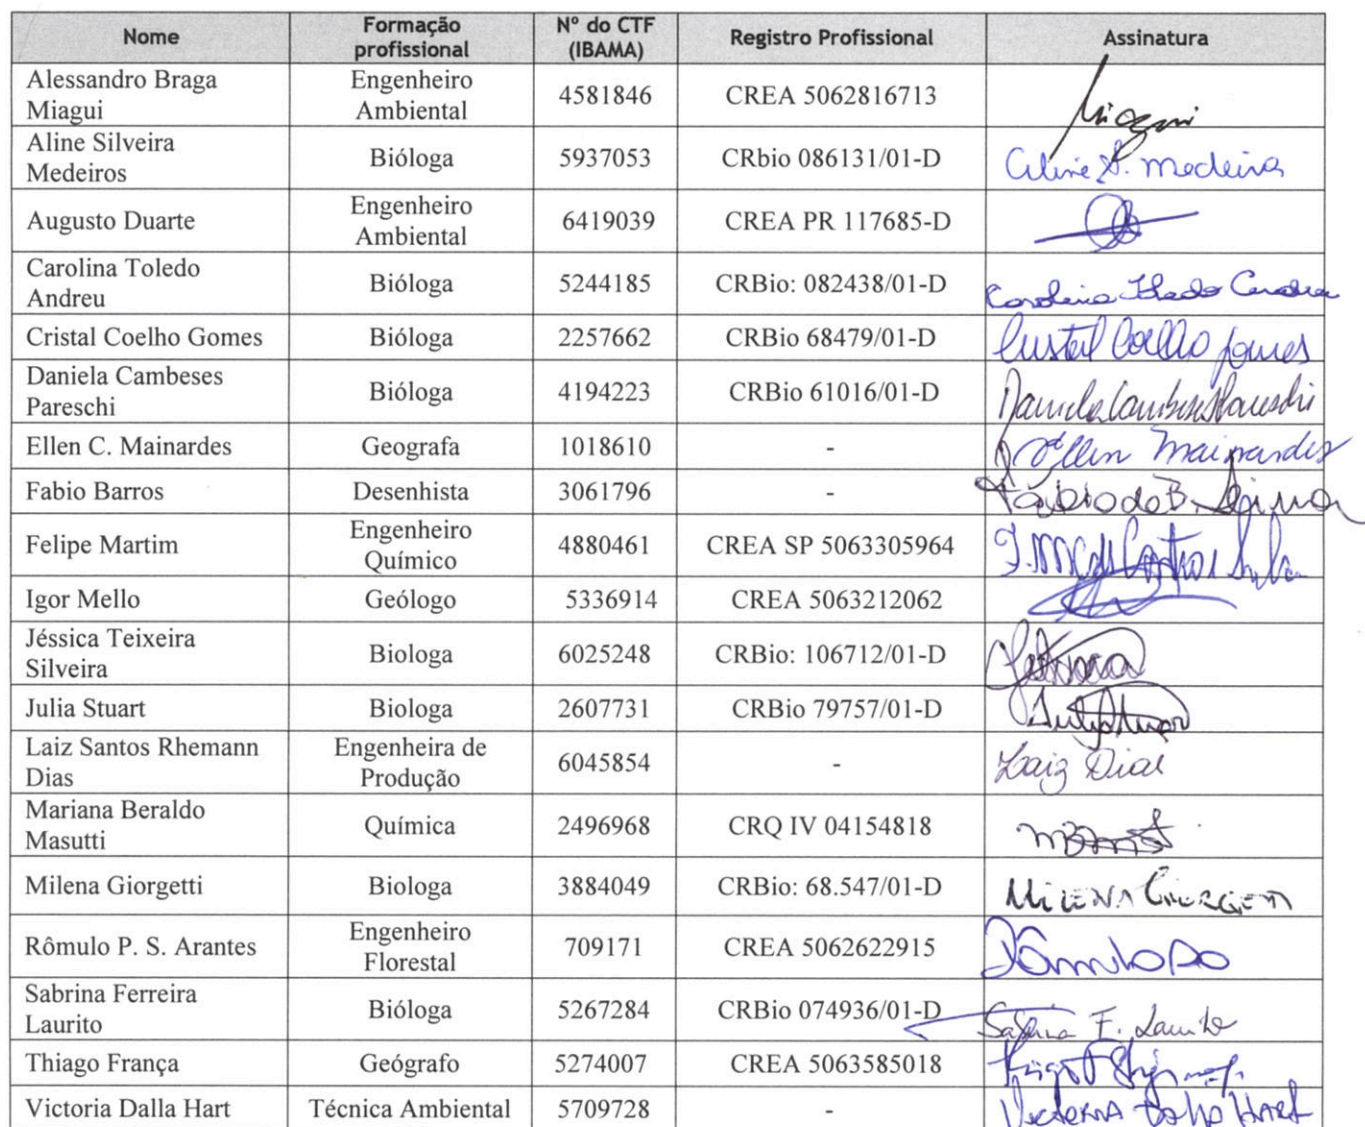 Nome Formação profissional Nº do CTF (IBAMA) Registro Profissional Assinatura
Alessandro Braga Miagui Engenheiro Ambiental 4581846 CREA 5062816713 Miagui
Aline Silveira Medeiros Bióloga 5937053 CRbio 086131/01-D Aline S. Medeiros
Augusto Duarte Engenheiro Ambiental 6419039 CREA PR 117685-D
Carolina Toledo Andreu Bióloga 5244185 CRBio: 082438/01-D Carolina Toledo Andreu
Cristal Coelho Gomes Bióloga 2257662 CRBio 68479/01-D Cristal Coelho Gomes
Daniela Cambeses Pareschi Bióloga 4194223 CRBio 61016/01-D Daniela Cambeses Pareschi
Ellen C. Mainardes Geografa 1018610 - Ellen Mainardes
Fabio Barros Desenhista 3061796 -
Felipe Martim Engenheiro Químico 4880461 CREA SP 5063305964
Igor Mello Geólogo 5336914 CREA 5063212062
Jéssica Teixeira Silveira Biologa 6025248 CRBio: 106712/01-D
Julia Stuart Biologa 2607731 CRBio 79757/01-D
Laiz Santos Rhemann Dias Engenheira de Produção 6045854 - Laiz Dias
Mariana Beraldo Masutti Química 2496968 CRQ IV 04154818
Milena Giorgetti Biologa 3884049 CRBio: 68.547/01-D Milena Giorgetti
Rômulo P. S. Arantes Engenheiro Florestal 709171 CREA 5062622915
Sabrina Ferreira Laurito Bióloga 5267284 CRBio 074936/01-D Sabrina F. Laurito
Thiago França Geógrafo 5274007 CREA 5063585018
Victoria Dalla Hart Técnica Ambiental 5709728 - Victoria Dalla Hart